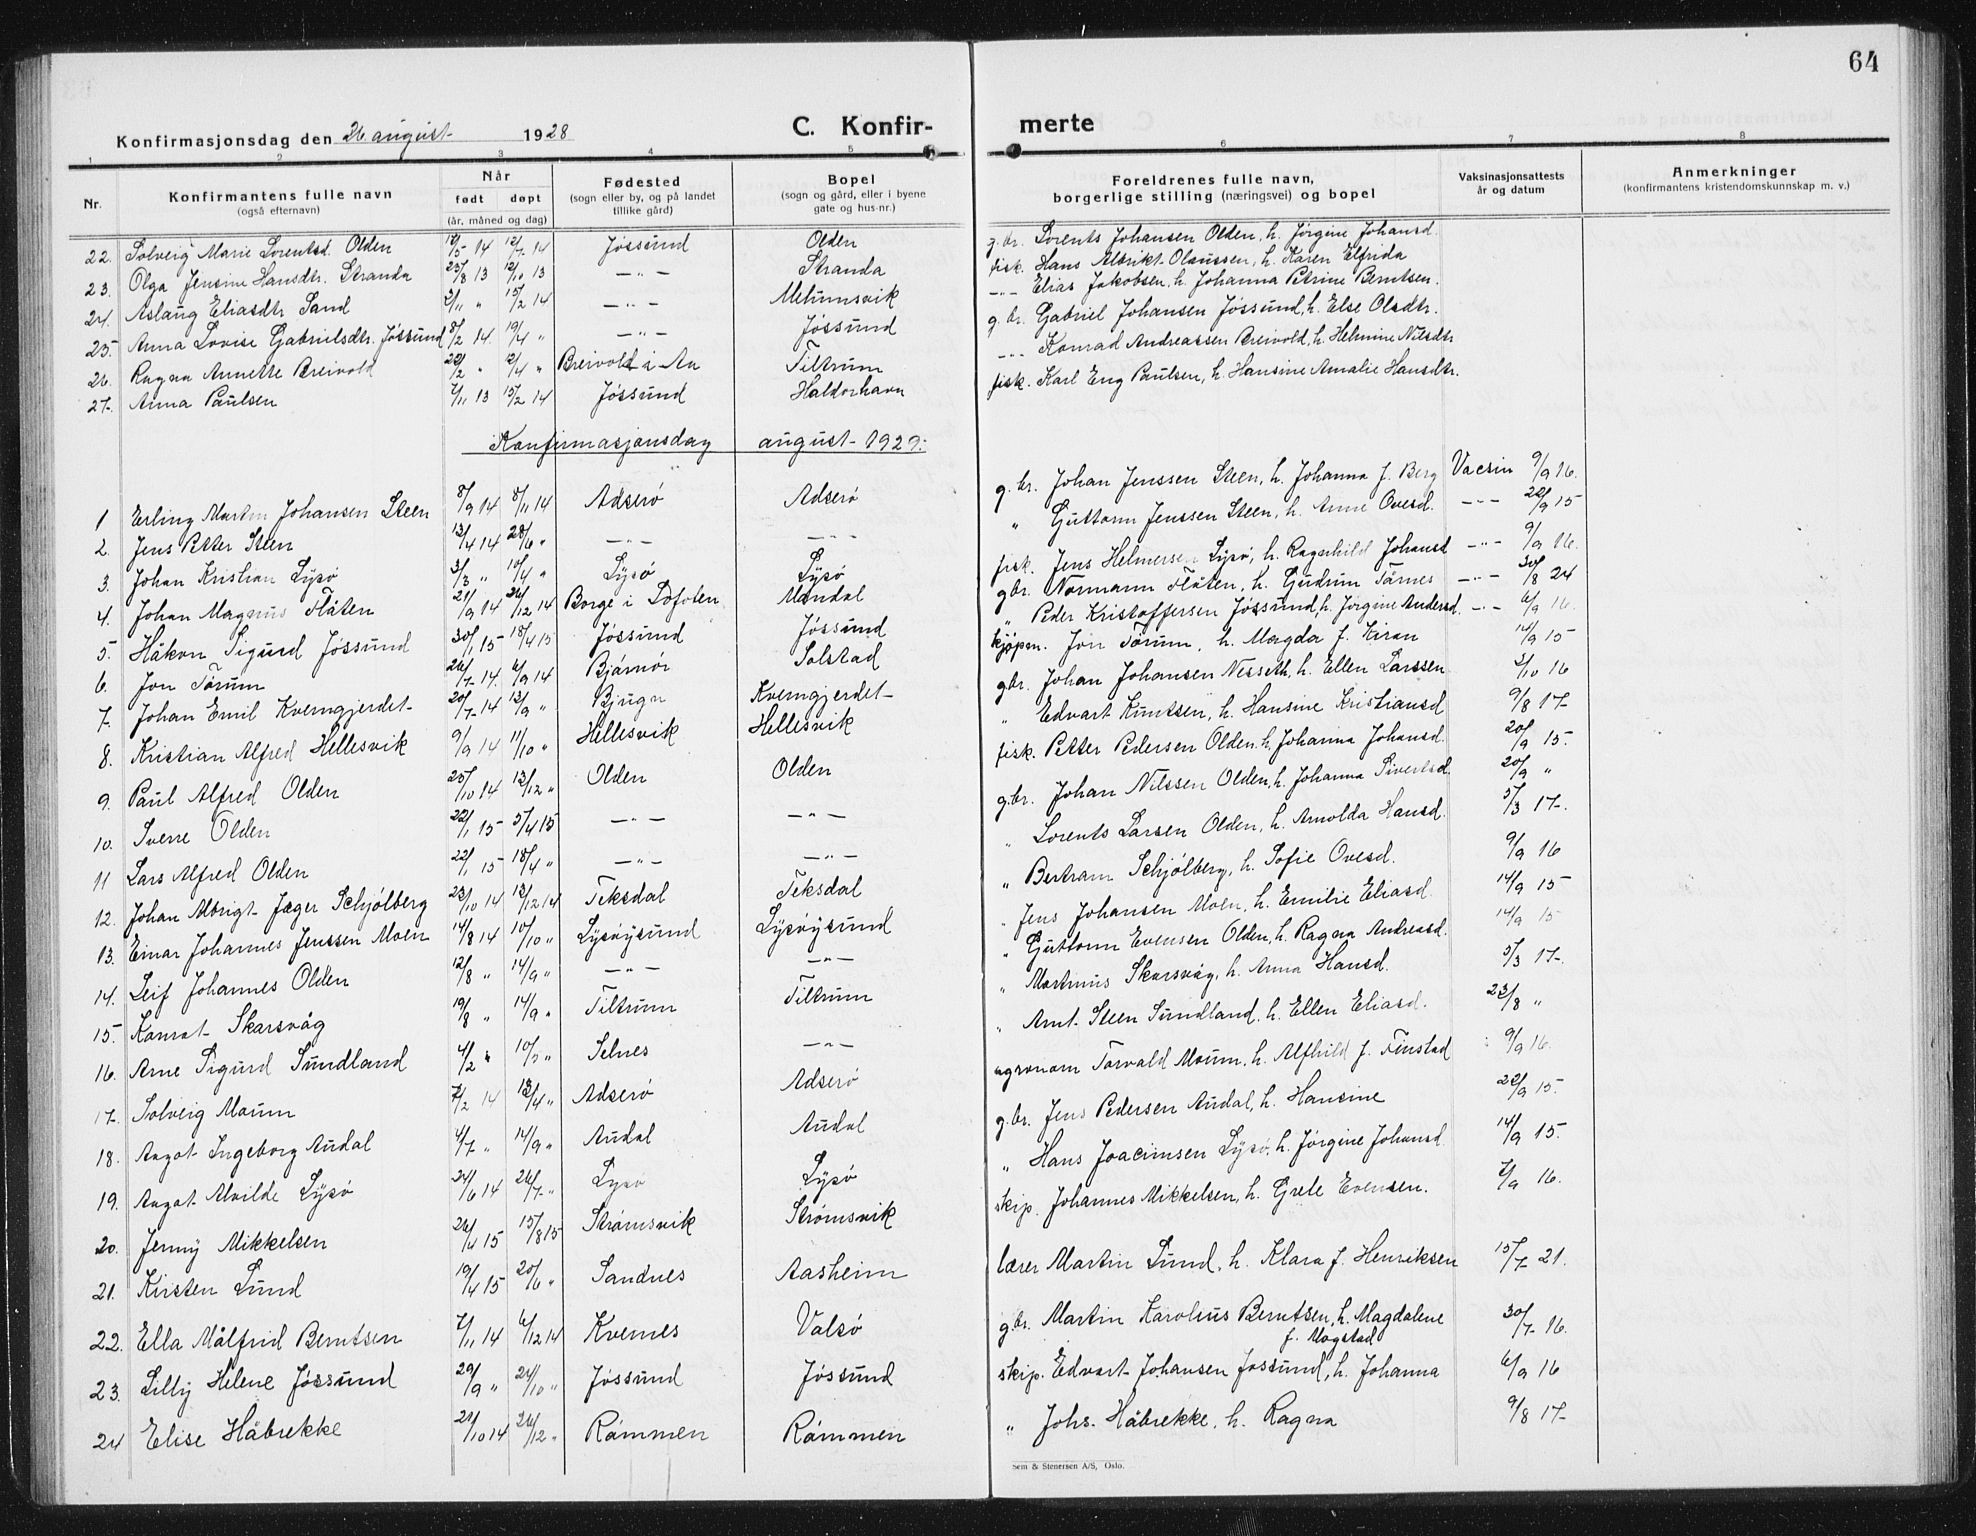 64
Konfirmasjonsdag den 26 august 1928
C. Konfir-
merte
1 2 3 4 5 6 7 8
Nr.
Konfirmantens fulle navn
(også efternavn)
Når
født døpt
(år, måned og dag)
Fødested
(sogn eller by, og på landet
tillike gård)
Bopel
(sogn og gård, eller i byene
gate og hus-nr.)
Foreldrenes fulle navn,
borgerlige stilling (næringsvei) og bopel
Vaksinasjonsattests
år og datum
Anmerkninger
(konfirmantens kristendomskunnskap m. v.)
22. Solveig Marie Lorentsd. Olden 12/5 14 12/7 14 Jøssund Olden g.br. Lorents Johansen Olden, h. Jørgine Johansd.
23. Olga Jensine Hansdtr. Stranda 25/8 13 12/10 13 —"— Stranda fisk. Hans Albrikt Olaussen, h. Karen Elfrida
24. Aslaug Eliasdtr Sand 2/11 " 15/2 14 —"— Mehumsvik —"— Elias Jakobsen, h. Johanna Petrine Berntsen.
25. Anna Lovise Gabrielsdtr. Jøssund 8/2 14. 19/4 " —"— Jøssund g.br. Gabriel Johansen Jøssund, h. Else Olsdtr.
26. Ragna Annette Breivold 22/2 " 12/4 " Breivold i Aa Tiltrum —"— Konrad Andreassen Breivold, h. Helmine Nilsdtr
27. Anna Paulsen 7/11 13 15/2 14 Jøssund Haldorhavn fisk. Karl Eng Paulsen, h. Hansine Amalie Hansdtr.
Konfirmasjonsdag august 1929:
1 Erling Martin Johansen Steen 8/9 14 8/11 14 Adserø Adserø g.br. Johan Jenssen Steen, h. Johanna f. Berg Vacsin 9/9 16.
2. Jens Petter Steen 13/4 14 28/6 " —"— —"— " Guttorm Jenssen Steen, h. Anne Ovesd. —"— 22/9 15
3. Johan Kristian Lysø 3/3 " 10/4 " Lysø Lysø fisk. Jens Helmersen Lysø, h. Ragnhild Johansd —"— 9/9 16.
4. Johan Magnus Flåten 21/9 14 26/12 14 Borge i Lofoten Mandal gbr. Normann Flåten, h. Gudrun Tårnes —"— 30/8 24
5. Håkon Sigurd Jøssund 30/1 15 18/4 15 Jøssund Jøssund " Peder Kristoffersen Jøssund, h. Jørgine Andersd. —"— 6/9 16.
6. Jon Tårum 26/7 14. 6/9 14 Bjørnør Solstad kjøpm. Jon Tårum, h. Magda f. Kiran 14/9 15
7. Johan Emil Kverngjerdet 20/7 14 13/9 " Bjugn Kverngjerdet gbr. Johan Johansen Nesseth, h. Ellen Larssen 3/10 16
8. Kristian Alfred Hellesvik 9/9 14 11/10 " Hellesvik Hellesvik " Edvart Knutsen, h. Hansine Kristiansd 9/8 17
9. Paul Alfred Olden 25/10 14 13/12 " Olden Olden fisk. Petter Pedersen Olden, h. Johanna Johansd. 20/9 15.
10. Sverre Olden 22/1 15 5/4 15 —"— —"— g.br. Johan Nilssen Olden, h. Johanna Sivertsd. 20/9 "
11 Lars Alfred Olden 22/1 15 18/4 " —"— —"— " Lorents Larsen Olden, h. Arnolda Hansd. 5/3 17.
12. Johan Albrigt Jæger Schjølberg 23/10 14 13/12 14 Teksdal Teksdal " Bertram Schjølberg, h. Sofie Ovesd. 9/9 16
13. Einar Johannes Jenssen Moen 14/8 14 10/10 " Lysøysund Lysøysund " Jens Johansen Moen, h. Emilie Eliasd. 14/9 15
14. Leif Johannes Olden 12/8 " 14/9 " —"— —"— " Guttorm Evensen Olden, h. Ragna Andreasd. 14/9 15
15. Konrat Skarsvåg 19/8 " 14/9 " Tiltrum Tiltrum " Martinus Skarsvåg, h. Anna Hansd. 5/3 17.
16. Arne Sigurd Sundland 4/2 " 10/5 " Selnes —"— " Arnt Steen Sundland, h. Ellen Eliasd. 23/8 "
17. Solveig Maum 7/2 14 13/4 " Adserø Adserø agronom Torvald Maum, h. Alfhild f. Finstad 9/9 16.
18. Aagot Ingeborg Audal 4/7 " 14/9 " Audal Audal g.br. Jens Pedersen Audal, h. Hansine 22/9 15.
19. Aagot Alvilde Lysø 24/6 14 26/7 " Lysø Lysø " Hans Joacimsen Lysø, h. Jørgine Johansd 14/9 15.
20. Jenny Mikkelsen 26/4 15 15/8 15 Strømsvik Strømsvik skip. Johannes Mikkelsen, h. Grete Evensen. 7/9 16.
21. Kirsten Sund 19/4 15 20/6 " Sandnes Aasheim lærer Martin Sund, h. Klara f. Henriksen 15/7 21.
22. Ella Målfrid Berntsen 7/11 14 6/12 14 Kvernes Valsø g.br. Martin Karolius Berntsen, h. Magdalene
f. Mogstad 30/7 16.
23. Lilly Helene Jøssund 29/9 " 24/10 " Jøssund Jøssund skip. Edvart Johansen Jøssund, h. Johanna 6/9 16
24 Elise Håbrekke 21/10 14 26/12 " Råmmen Råmmen " Johs. Håbrekke, h. Ragna 9/8 17
Sem & Stenersen A/S, Oslo.